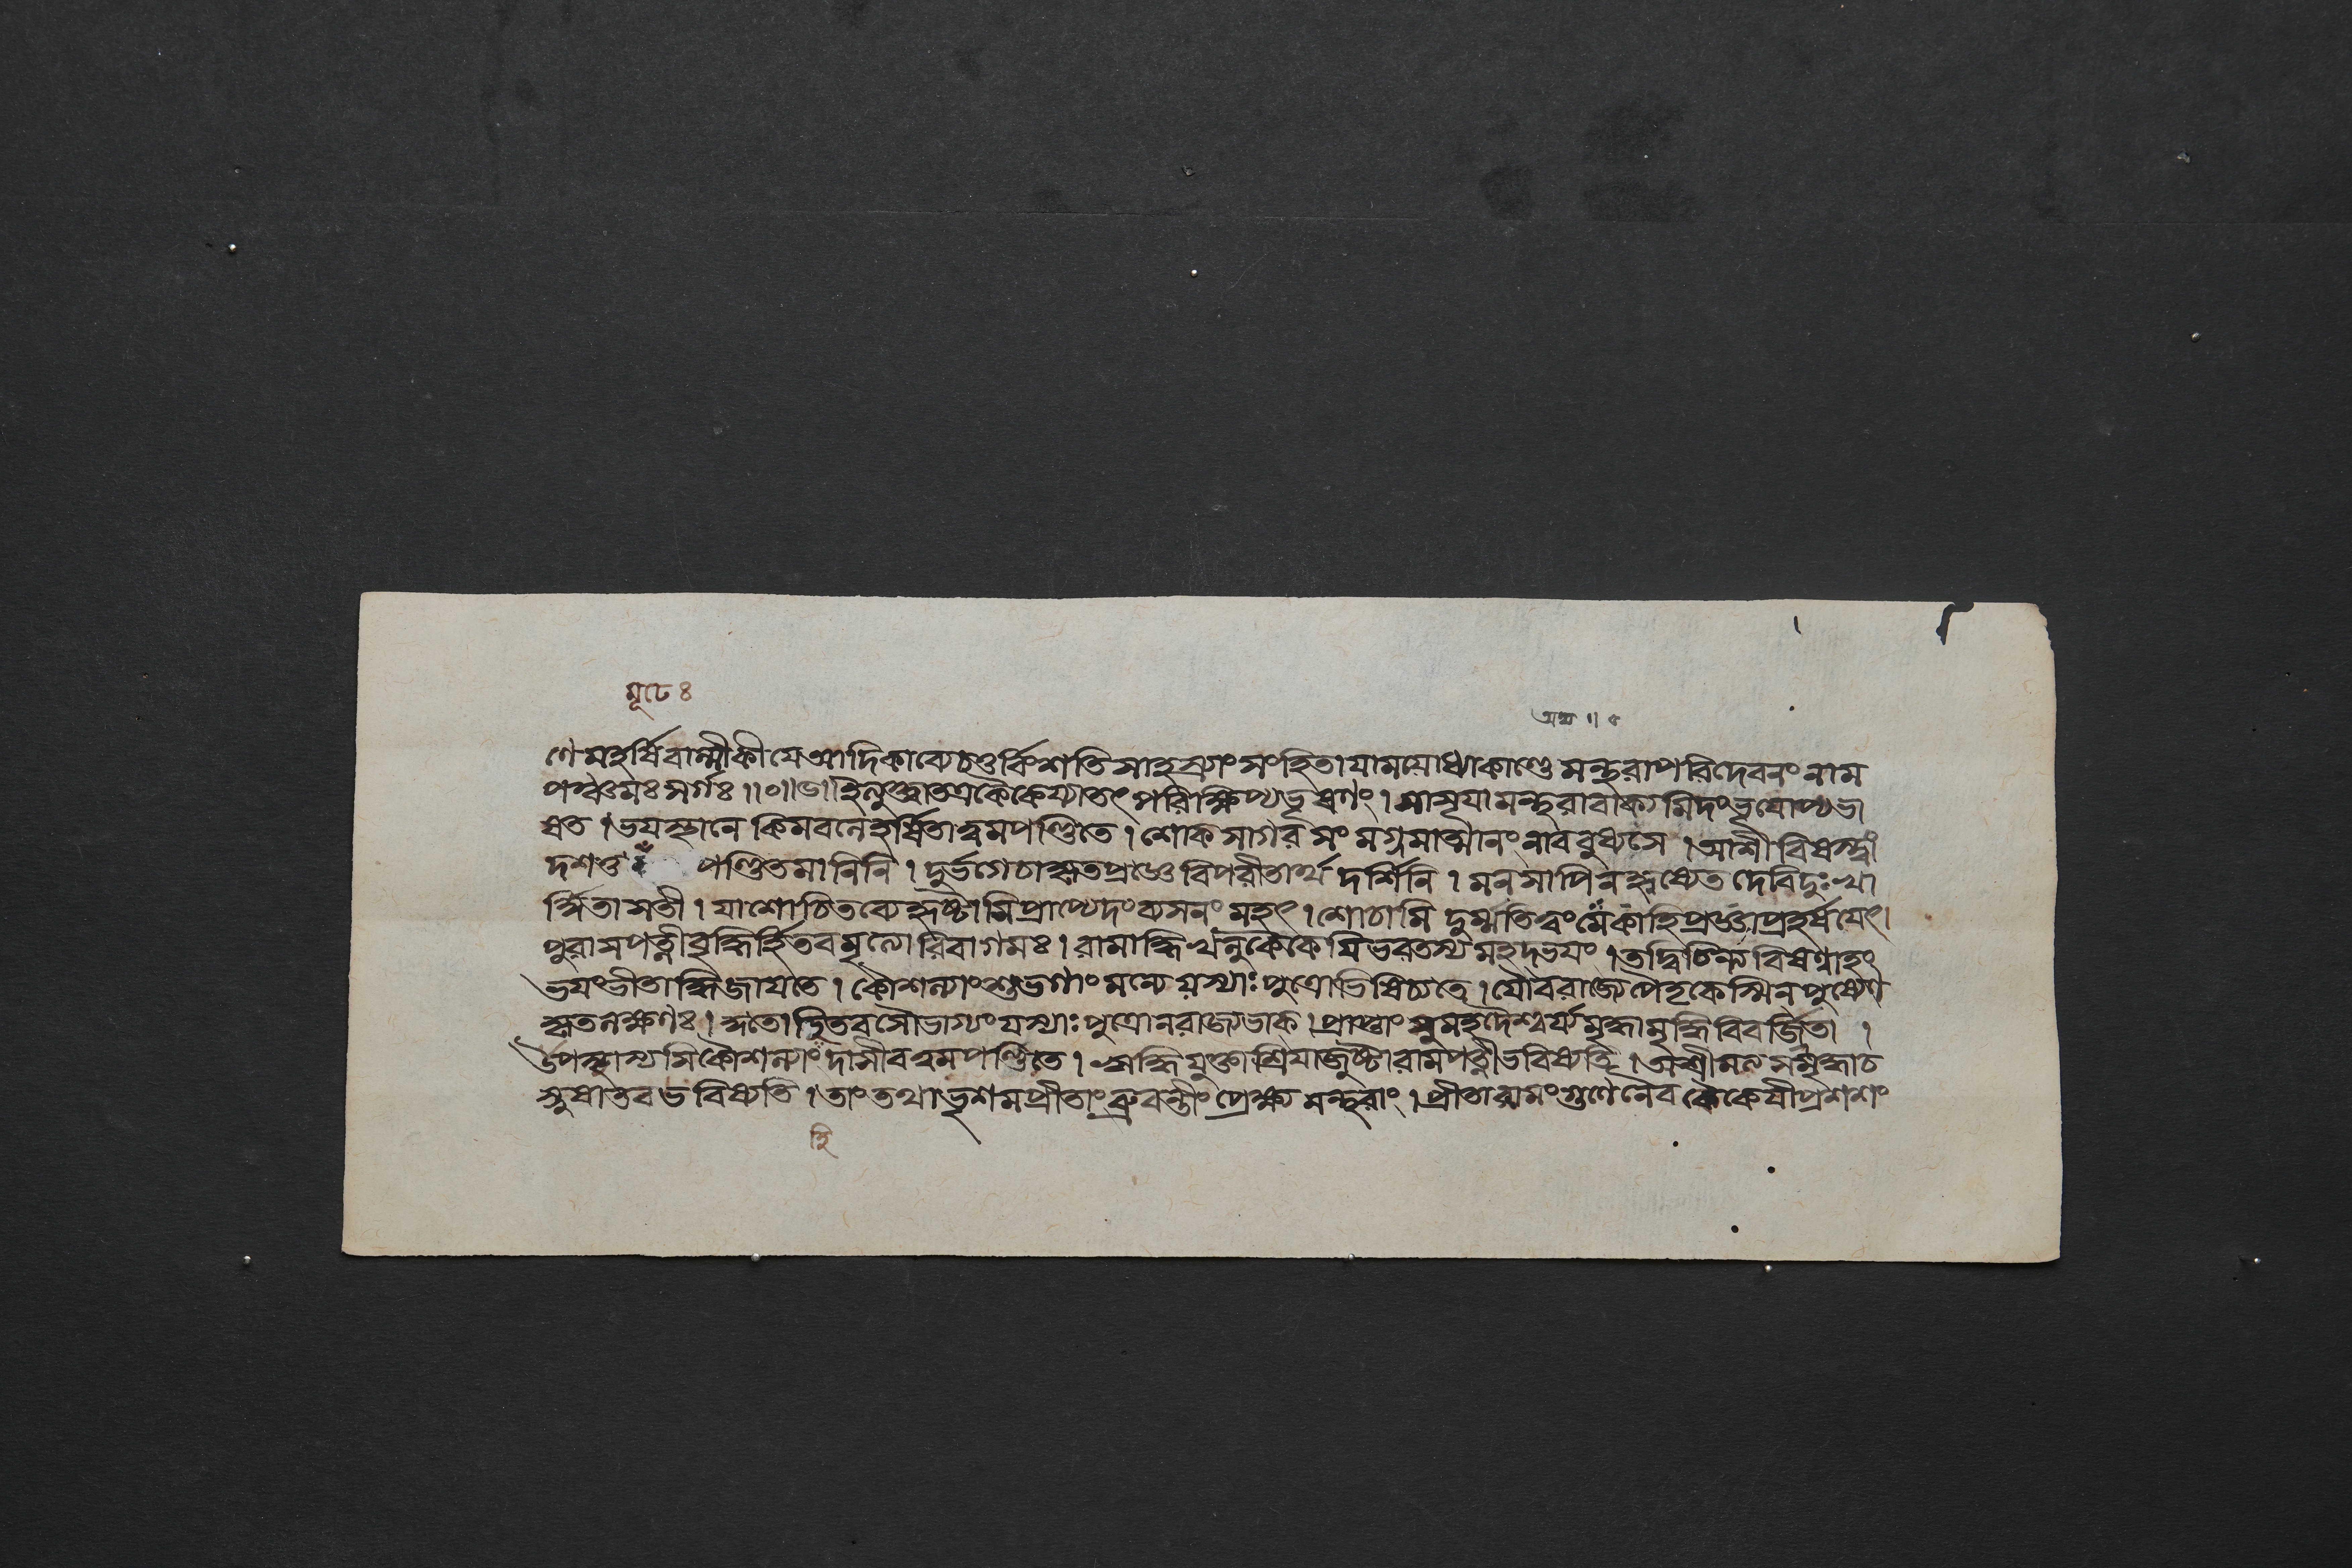 মূঢে ৪
অয ॥ ৫
ণে মহর্ষিবাল্মীকীযে আদিকাব্যে চতুর্বিংশতিসাহস্র্যাং সংহিতাযামযোধ্যাকাণ্ডে মন্থরাপরিদেবনং নাম
পঞ্চমঃ সর্গঃ ॥০॥ কৈকেয্যা তৎ পরিক্ষিপ্য ভূষণং । সাসূযা মন্থরা বাক্যমিদং ভূযোপ্যভা
ষত । ভযস্থানে কিমবলে হর্ষিতাত্বমপণ্ডিতে । শোকসাগরসংমগ্নমাত্মানং নাববুধ্যসে । আশীবিষস্ত্বাং
দশতু পণ্ডিতমানিনি । দুর্ভগে চাকৃতপ্রজ্ঞে বিপরীতার্থদর্শিনি । মনসাপি ন হৃষ্যেত দেবি দুঃখা
র্দ্দিতা সতী । যা শোচিতব্যে হৃষ্টাসি প্রাপ্যেদং ব্যসনং মহৎ । শোচামি দুর্ম্মতিত্বং মে কা হি প্রজ্ঞা প্রহর্ষযেৎ ।
পুরা সপত্নী মৃত্যোরিবাগমঃ । রামাদ্ধি খলু কৈকেযি ভরতস্য মহদ্ভযং । তদ্বিচিন্ত্য বিষণ্ণাহং
ভযং ভীতাদ্ধি জাযতে । কৌশল্যাং শুভগাং মন্যে যস্যাঃ পুত্রোভিষিচ্যতে । যৌবরাজ্যে পৈতৃকেস্মিন পুষ্যেণ
কৃতলক্ষণঃ । সৌভাগ্যং যস্যাঃ পুত্রো ন রাজ্যভাক । প্রাপ্তাং সুমহদৈশ্বর্য্যমৃদ্ধামৃদ্ধিবিবর্জ্জিতা ।
উপস্থাস্যসি কৌশল্যাং দাসীবত্ত্বমপণ্ডিতে । ঋদ্ধিযুক্তা শ্রিযা জুষ্টা রামপত্নী ভবিষ্যতি । অশ্রীমত্যসমৃদ্ধা চ
স্নুষা তব ভবিষ্যতি । তাং তথা ভৃশমপ্রীতাং ব্রুবন্তীং প্রেক্ষ্য মন্থরাং । প্রীতা রামং গুণেনৈব কৈকেযী প্রশশং
হি